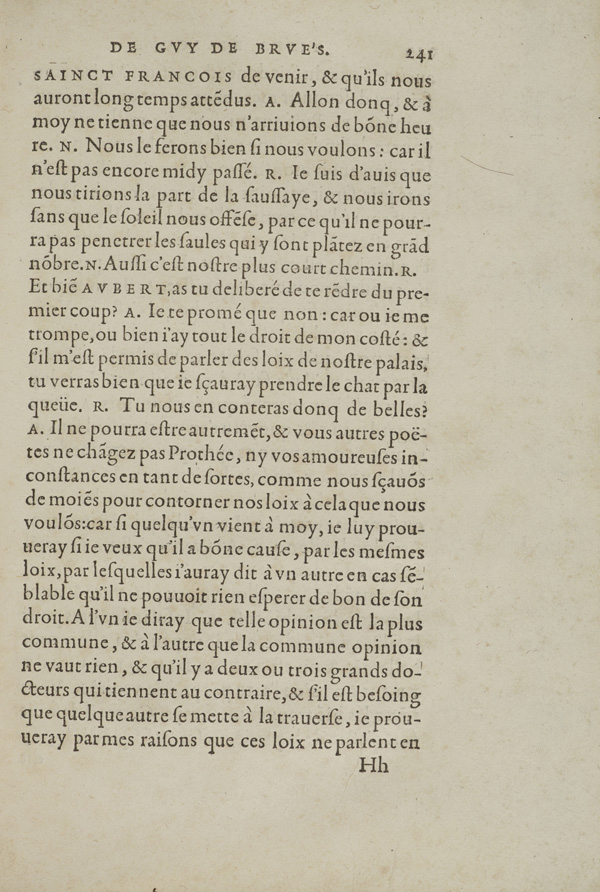 DE GVY DE BRVE'S. 241
SAINCT FRANCOIS de venir, & qu'ils nous
auront long temps attēdus. A. Allon donq, & à
moy ne tienne que nous n'arriuions de bōne heu
re. N. Nous le ferons bien si nous voulons : car il
n'eſt pas encore midy paſſé. R. Ie ſuis d'auis que
nous tirions la part de la ſauſſaye, & nous irons
ſans que le ſoleil nous offēſe, par ce qu'il ne pour-
ra pas penetrer les ſaules qui y ſont plātez en grād
nōbre. N. Auſſi c'eſt noſtre plus court chemin. R.
Et biē AVBERT, as tu deliberé de te rēdre du pre-
mier coup? A. Ie te promé que non : car ou ie me
trompe, ou bien i'ay tout le droit de mon coſté : &
ſ'il m'eſt permis de parler des loix de noſtre palais,
tu verras bien que ie ſçauray prendre le chat par la
queüe. R. Tu nous en conteras donq de belles?
A. Il ne pourra eſtre autremēt, & vous autres poë-
tes ne chāgez pas Prothée, ny vos amoureuſes in-
conſtances en tant de ſortes, comme nous ſçauōs
de moiēs pour contorner nos loix à cela que nous
voulōs: car ſi quelqu'vn vient à moy, ie luy prou-
ueray ſi ie veux qu'il a bōne cauſe, par les meſmes
loix, par leſquelles i'auray dit à vn autre en cas ſē-
blable qu'il ne pouuoit rien eſperer de bon de ſon
droit. A l'vn ie diray que telle opinion eſt la plus
commune, & à l'autre que la commune opinion
ne vaut rien, & qu'il y a deux ou trois grands do-
cteurs qui tiennent au contraire, & ſ'il eſt beſoing
que quelque autre ſe mette à la trauerſe, ie prou-
ueray par mes raiſons que ces loix ne parlent en
Hh